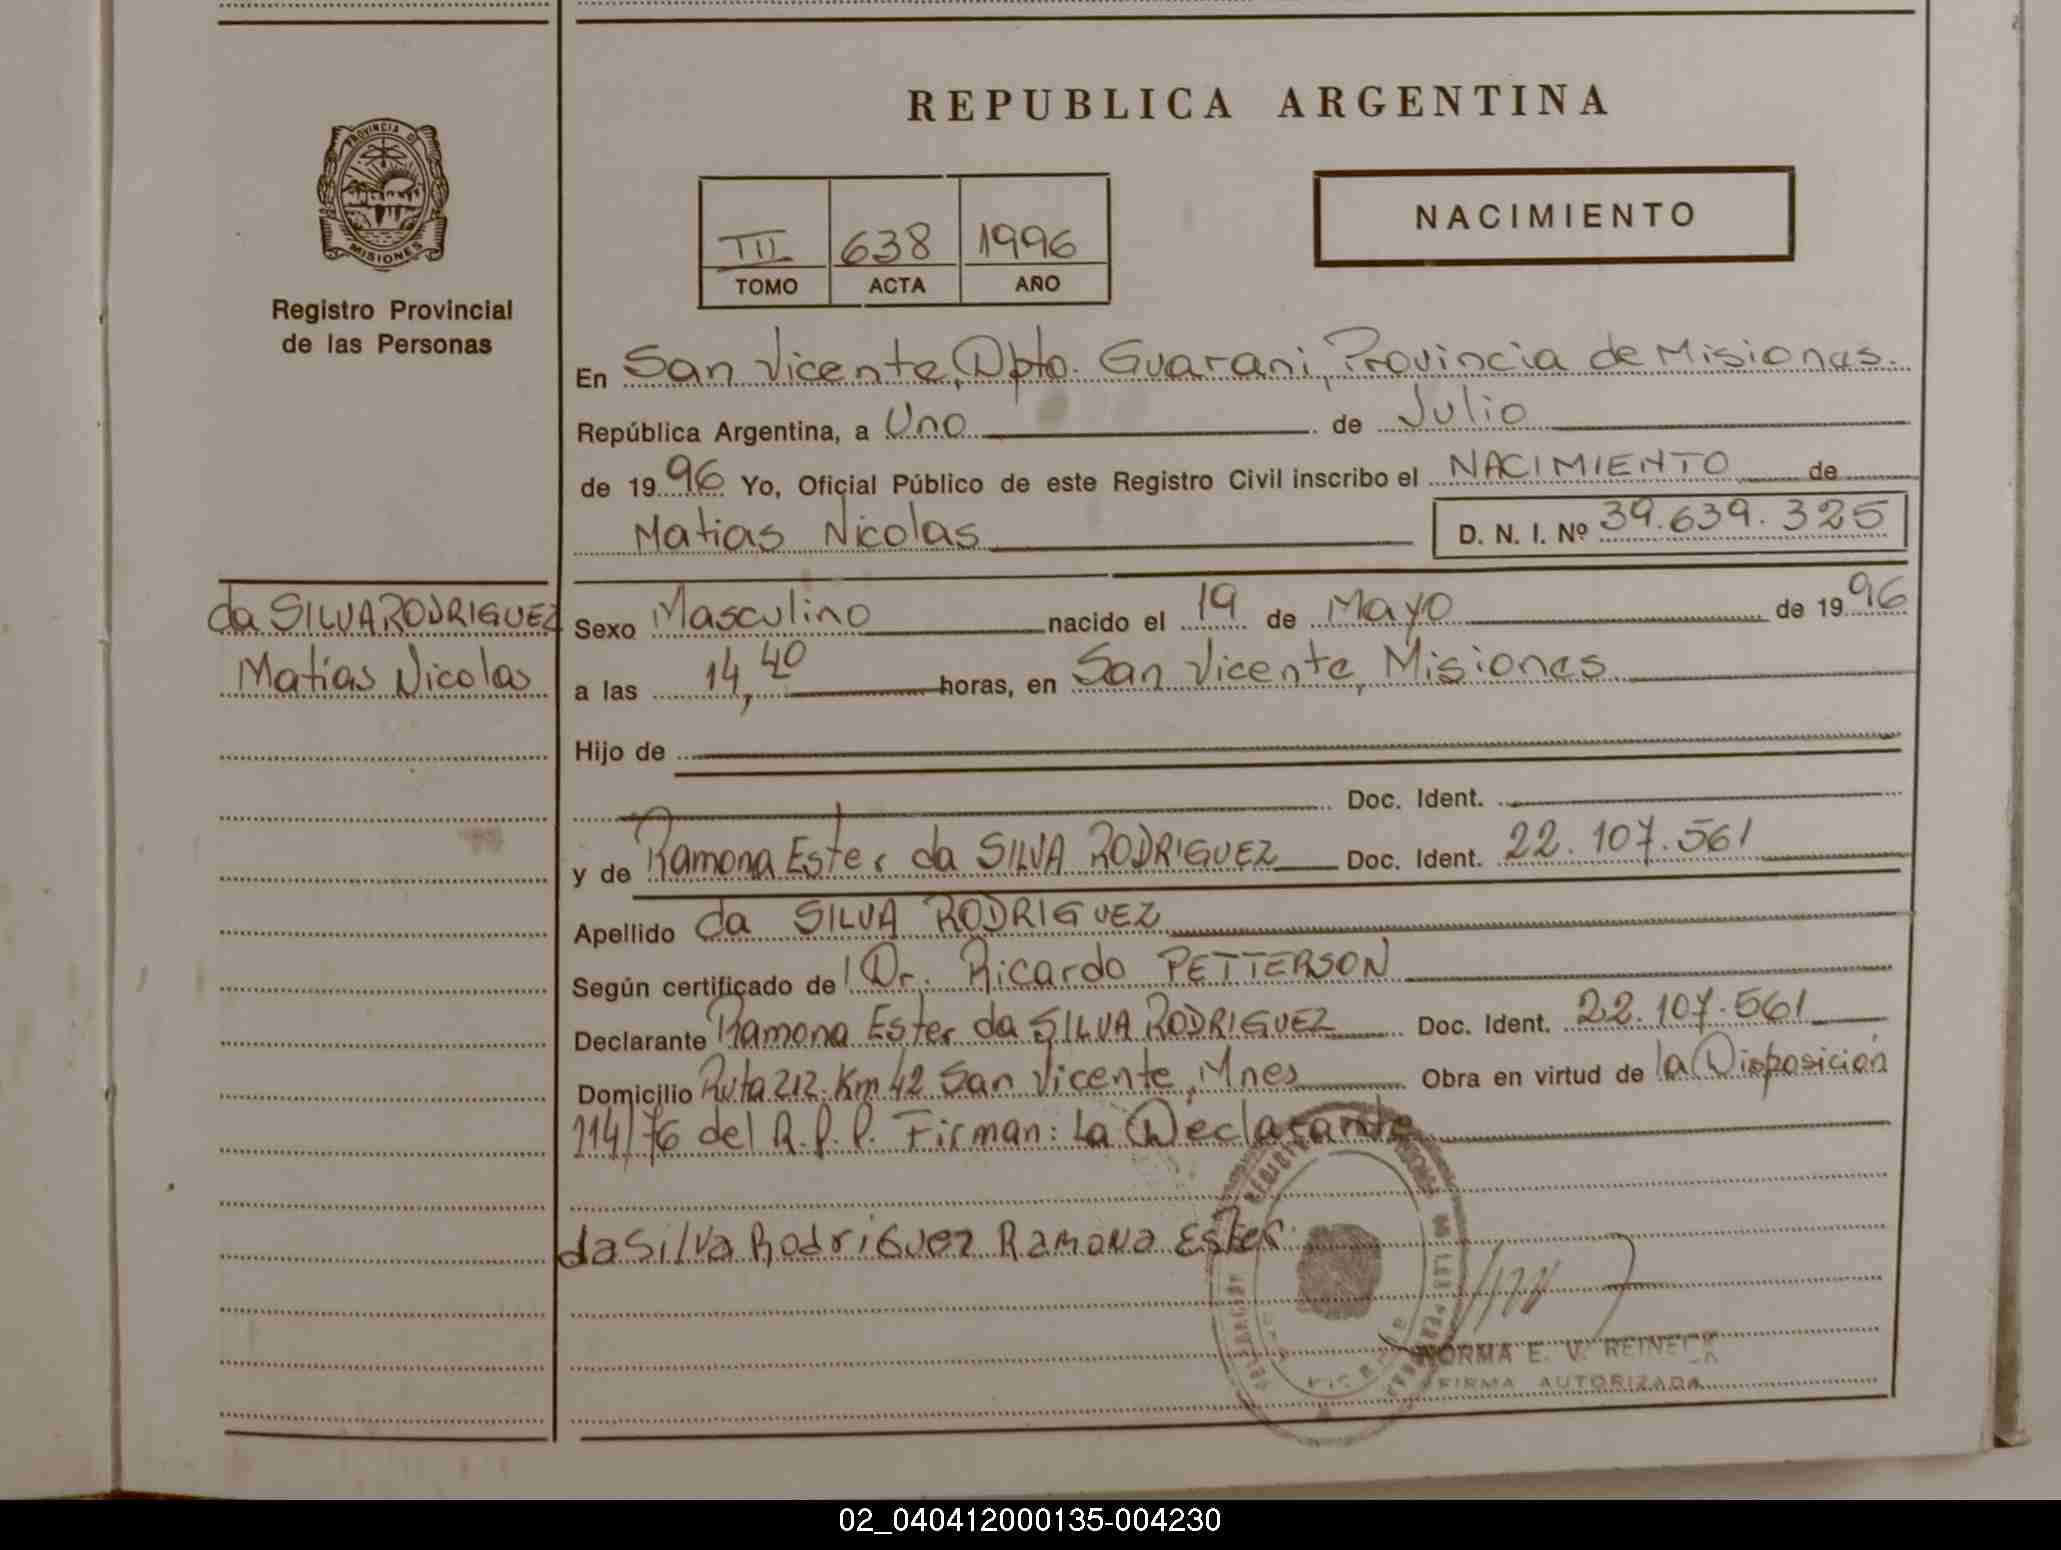 REPUBLICA ARGENTINA
PROVINCIA DE
MISIONES
Registro Provincial
de las Personas
III 638 1996
TOMO ACTA AÑO
NACIMIENTO
En San Vicente, Dpto. Guarani, Provincia de Misiones.
República Argentina, a Uno de Julio
de 1996 Yo, Oficial Público de este Registro Civil inscribo el NACIMIENTO de
Matias Nicolas D. N. I. Nº 39.639.325
da SILVA RODRIGUEZ
Matías Nicolas
Sexo Masculino nacido el 19 de Mayo de 1996
a las 14,40 horas, en San Vicente, Misiones
Hijo de
Doc. Ident.
y de Ramona Ester da SILVA RODRIGUEZ Doc. Ident. 22.107.561
Apellido da SILVA RODRIGUEZ
Según certificado de Dr. Ricardo PETTERSON
Declarante Ramona Ester da SILVA RODRIGUEZ Doc. Ident. 22.107.561
Domicilio Ruta 212 Km 42 San Vicente, Mnes Obra en virtud de la Disposición
114/76 del R.P.P. Firman: La Declarante
da Silva Rodriguez Ramona Ester.
NORMA E. V. REINECK
FIRMA AUTORIZADA
02_040412000135-004230